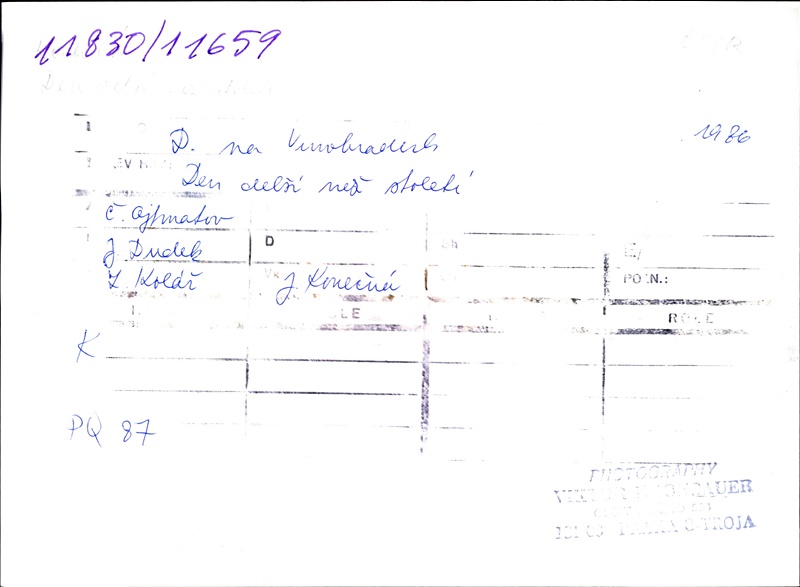 11830/11659
D. na Vinohradech
1986
Den delší než století
Č. Ajtmatov
J. Dudek
D
Z. Kolář
J. Konečná
POZN.:
ROLE
K
PQ 87
PHOTOGRAPHY
PRAHA 8-TROJA